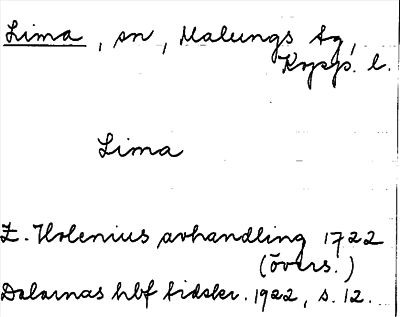 Lima, sn, Malungs tg,
Kopp. l.
Lima
E. Holenius avhandling 1722
(övers.)
Dalarnas hbf tidskr. 1922, s. 12.